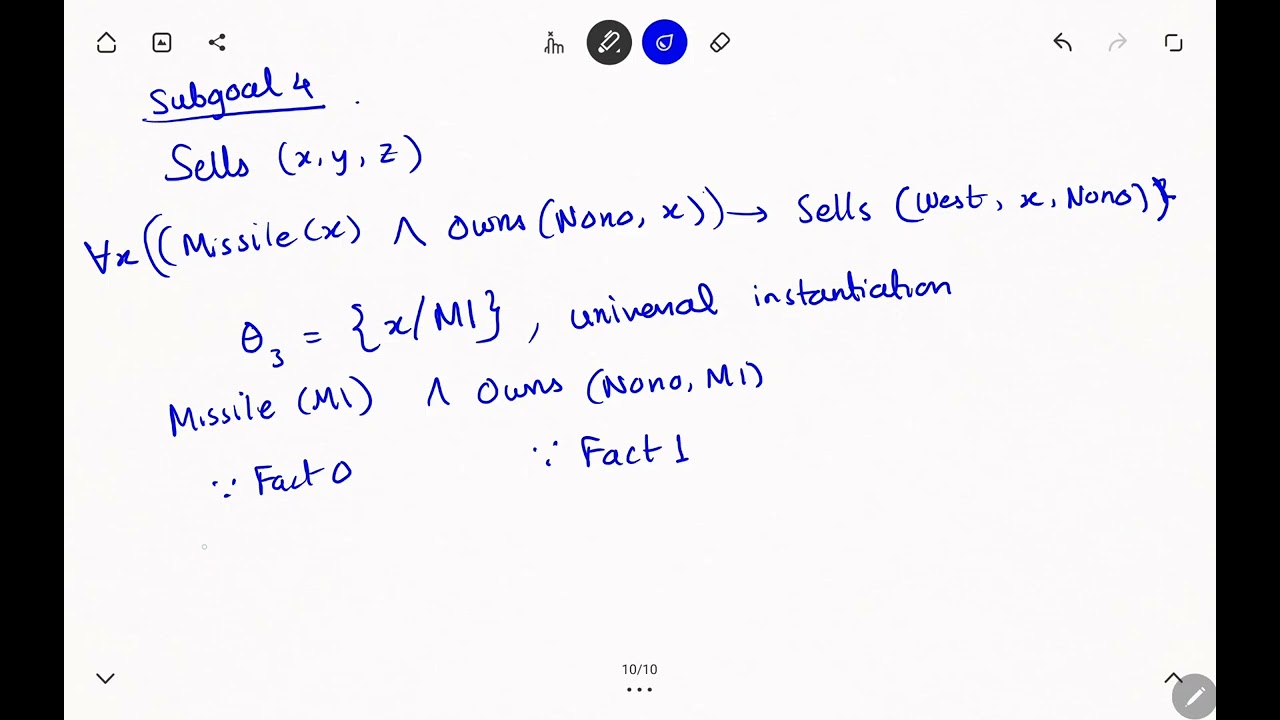 Subgoal 4
Sells (x, y, z)
∀x((Missile(x) ∧ Owns(Nono, x)) → Sells (West, x, Nono))
θ3 = {x/M1}, universal instantiation
Missile (M1) ∧ Owns (Nono, M1)
∵ Fact 0 ∵ Fact 1
10/10